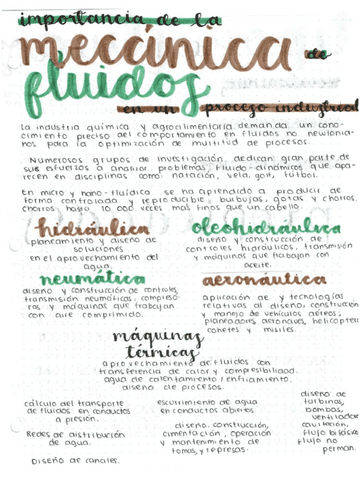 importancia de la
meccánica de
fluidos
en un proceso industrial
La industria química y agroalimentaria demanda un cono-
cimiento preciso del comportamiento en fluidos no newtonia-
nos para la optimización de multitud de procesos.
Numerosos grupos de investigación, dedican gran parte de
sus esfuerzos a analizar problemas fluido-dinámicos que apa-
recen en disciplinas como: natación, vela, golf, fútbol.
En micro y nano-fluídica se ha aprendido a producir de
forma controlada y reproducible, burbujas, gotas y chorros.
Chorros hasta 10 000 veces más finos que un cabello.
hidráulica
planeamiento y diseño de
soluciones
en el aprovechamiento del
agua.
oleohidráulica
diseño y construcción de
controles hidráulicos, transmisión
y máquinas que trabajan con
aceite.
neumática
diseño y construcción de controles,
transmisión neumáticas, compreso-
ras y máquinas que trabajan
con aire comprimido.
aeronáutica
aplicación de y tecnologías
relativas al diseño, construcción
y manejo de vehículos aéreos:
planeadores, aeronaves, helicopteros
cohetes y misiles.
máquinas
térmicas
aprovechamiento de fluidos con
transferencia de calor y compresibilidad.
agua de calentamiento/enfriamiento.
diseño de procesos.
cálculo del transporte
de fluidos en conductos
a presión.
Redes de distribución
de agua.
Diseño de canales.
escurrimiento de agua
en conductos abiertos.
diseño, construcción,
cimentación, operación
y mantenimiento de
tomas, y represas.
diseño de
turbinas,
bombas,
ventiladores
cavitación,
flujo bifásico
flujo no
perman.